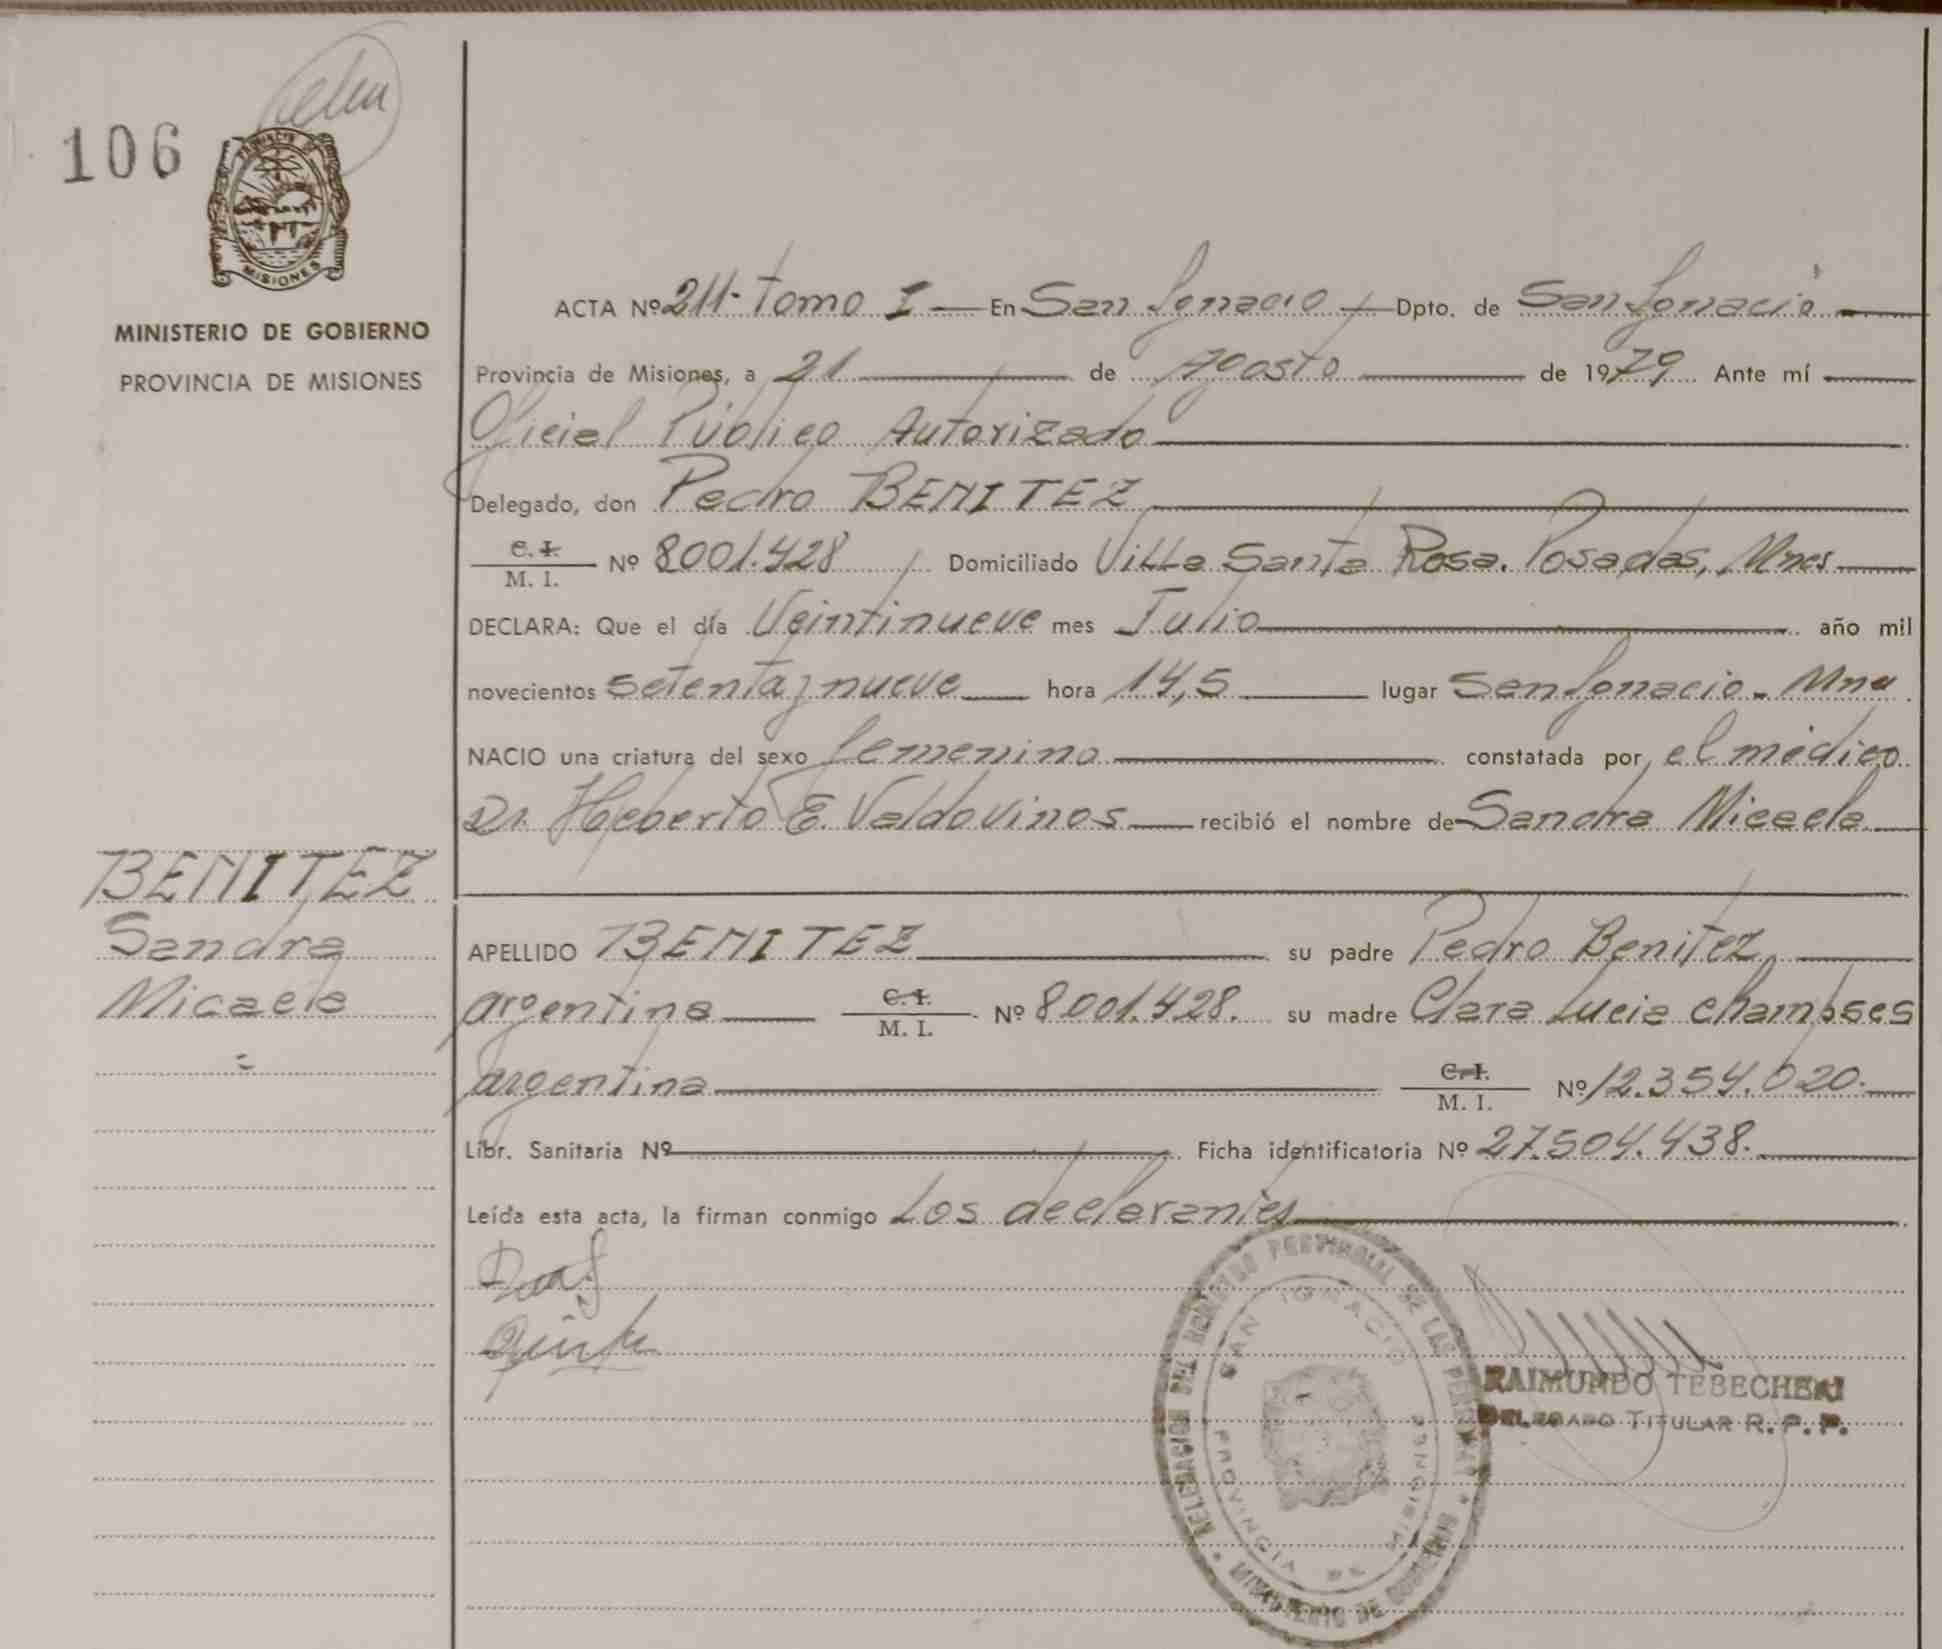 106
MISIONES
MINISTERIO DE GOBIERNO
PROVINCIA DE MISIONES
ACTA Nº 211- Tomo I — En San Ignacio — Dpto. de San Ignacio —
Provincia de Misiones, a 21 — de Agosto — de 1979 Ante mí —
Oficial Público Autorizado —
Delegado, don Pedro BENITEZ —
C. I. M. I. Nº 8001.428 Domiciliado Villa Santa Rosa. Posadas, Mnes —
DECLARA: Que el día Veintinueve mes Julio — año mil
novecientos setenta y nueve — hora 14,5 — lugar San Ignacio - Mnes
NACIO una criatura del sexo femenino — constatada por el médico
Dr. Heberto E. Valdovinos — recibió el nombre de Sandra Micaela —
BENITEZ
Sandra
Micaela
APELLIDO BENITEZ — su padre Pedro Benitez —
argentina — C. I. M. I. Nº 8001.428. su madre Clara Lucia
argentina — C. I. M. I. Nº 12.354.020. —
Libr. Sanitaria Nº — Ficha identificatoria Nº 27.504.438. —
Leída esta acta, la firman conmigo Los declarantes —
DELEGACION DEL REGISTRO PROVINCIAL DE LAS PERSONAS * MINISTERIO DE GOBIERNO *
SAN IGNACIO
PROVINCIA DE MISIONES
RAIMUNDO TEBECHERI
DELEGADO TITULAR R. P. P.